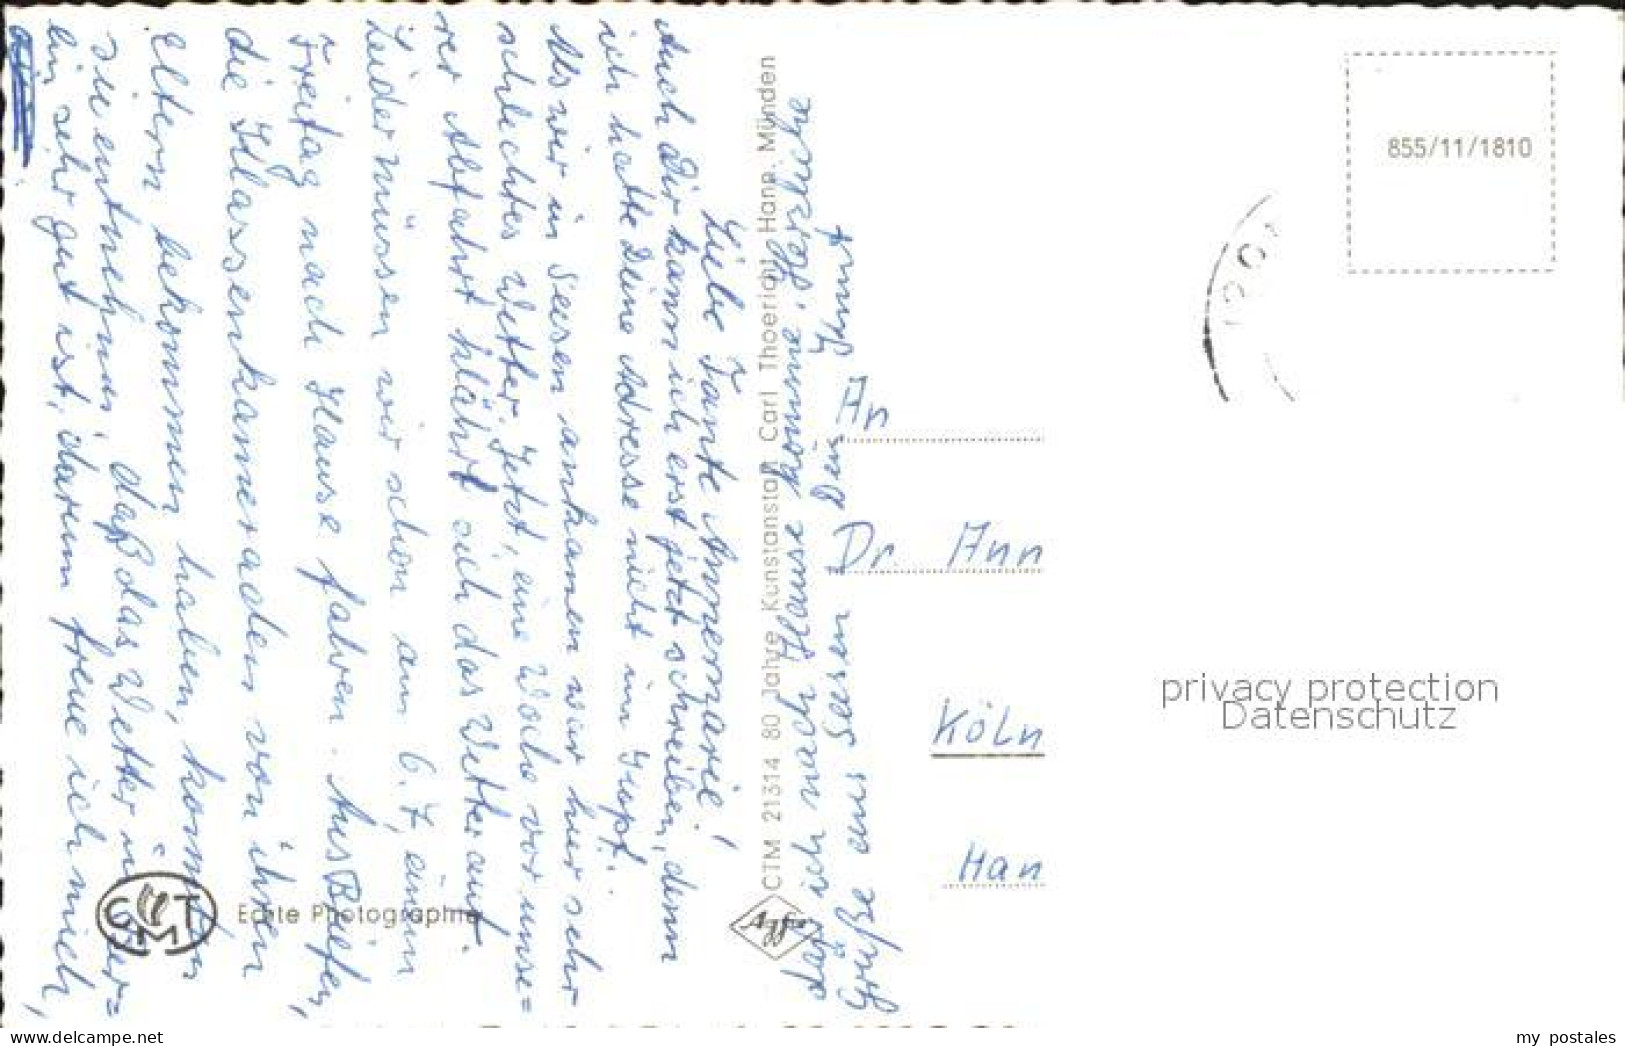 Liebe Tante Annemarie!
Auch Dir kann ich erst jetzt schreiben, denn
ich hatte Deine Adresse nicht im Kopf.
Als wir in Seesen ankamen war hier sehr
schlechtes Wetter. Jetzt, eine Woche vor unse=
rer Abfahrt klärt sich das Wetter auf.
Leider müssen wir schon am 6.7, einem
Freitag nach Hause fahren. Aus Briefen,
die Klassenkameraden von ihren
Eltern bekommen haben, konnten
sie entnehmen, daß das Wetter in
ein sehr gut ist, darum freue ich mich,
daß ich nach Hause komme.
Grüße aus Seesen Dein Knut
CTM 21314 80 Jahre Kunstanstalt Carl Thoericht Hann. Münden
Agfa
CTM
Echte Photographie
855/11/1810
An
Dr. Ann
Köln
Han
privacy protection
Datenschutz
my postales